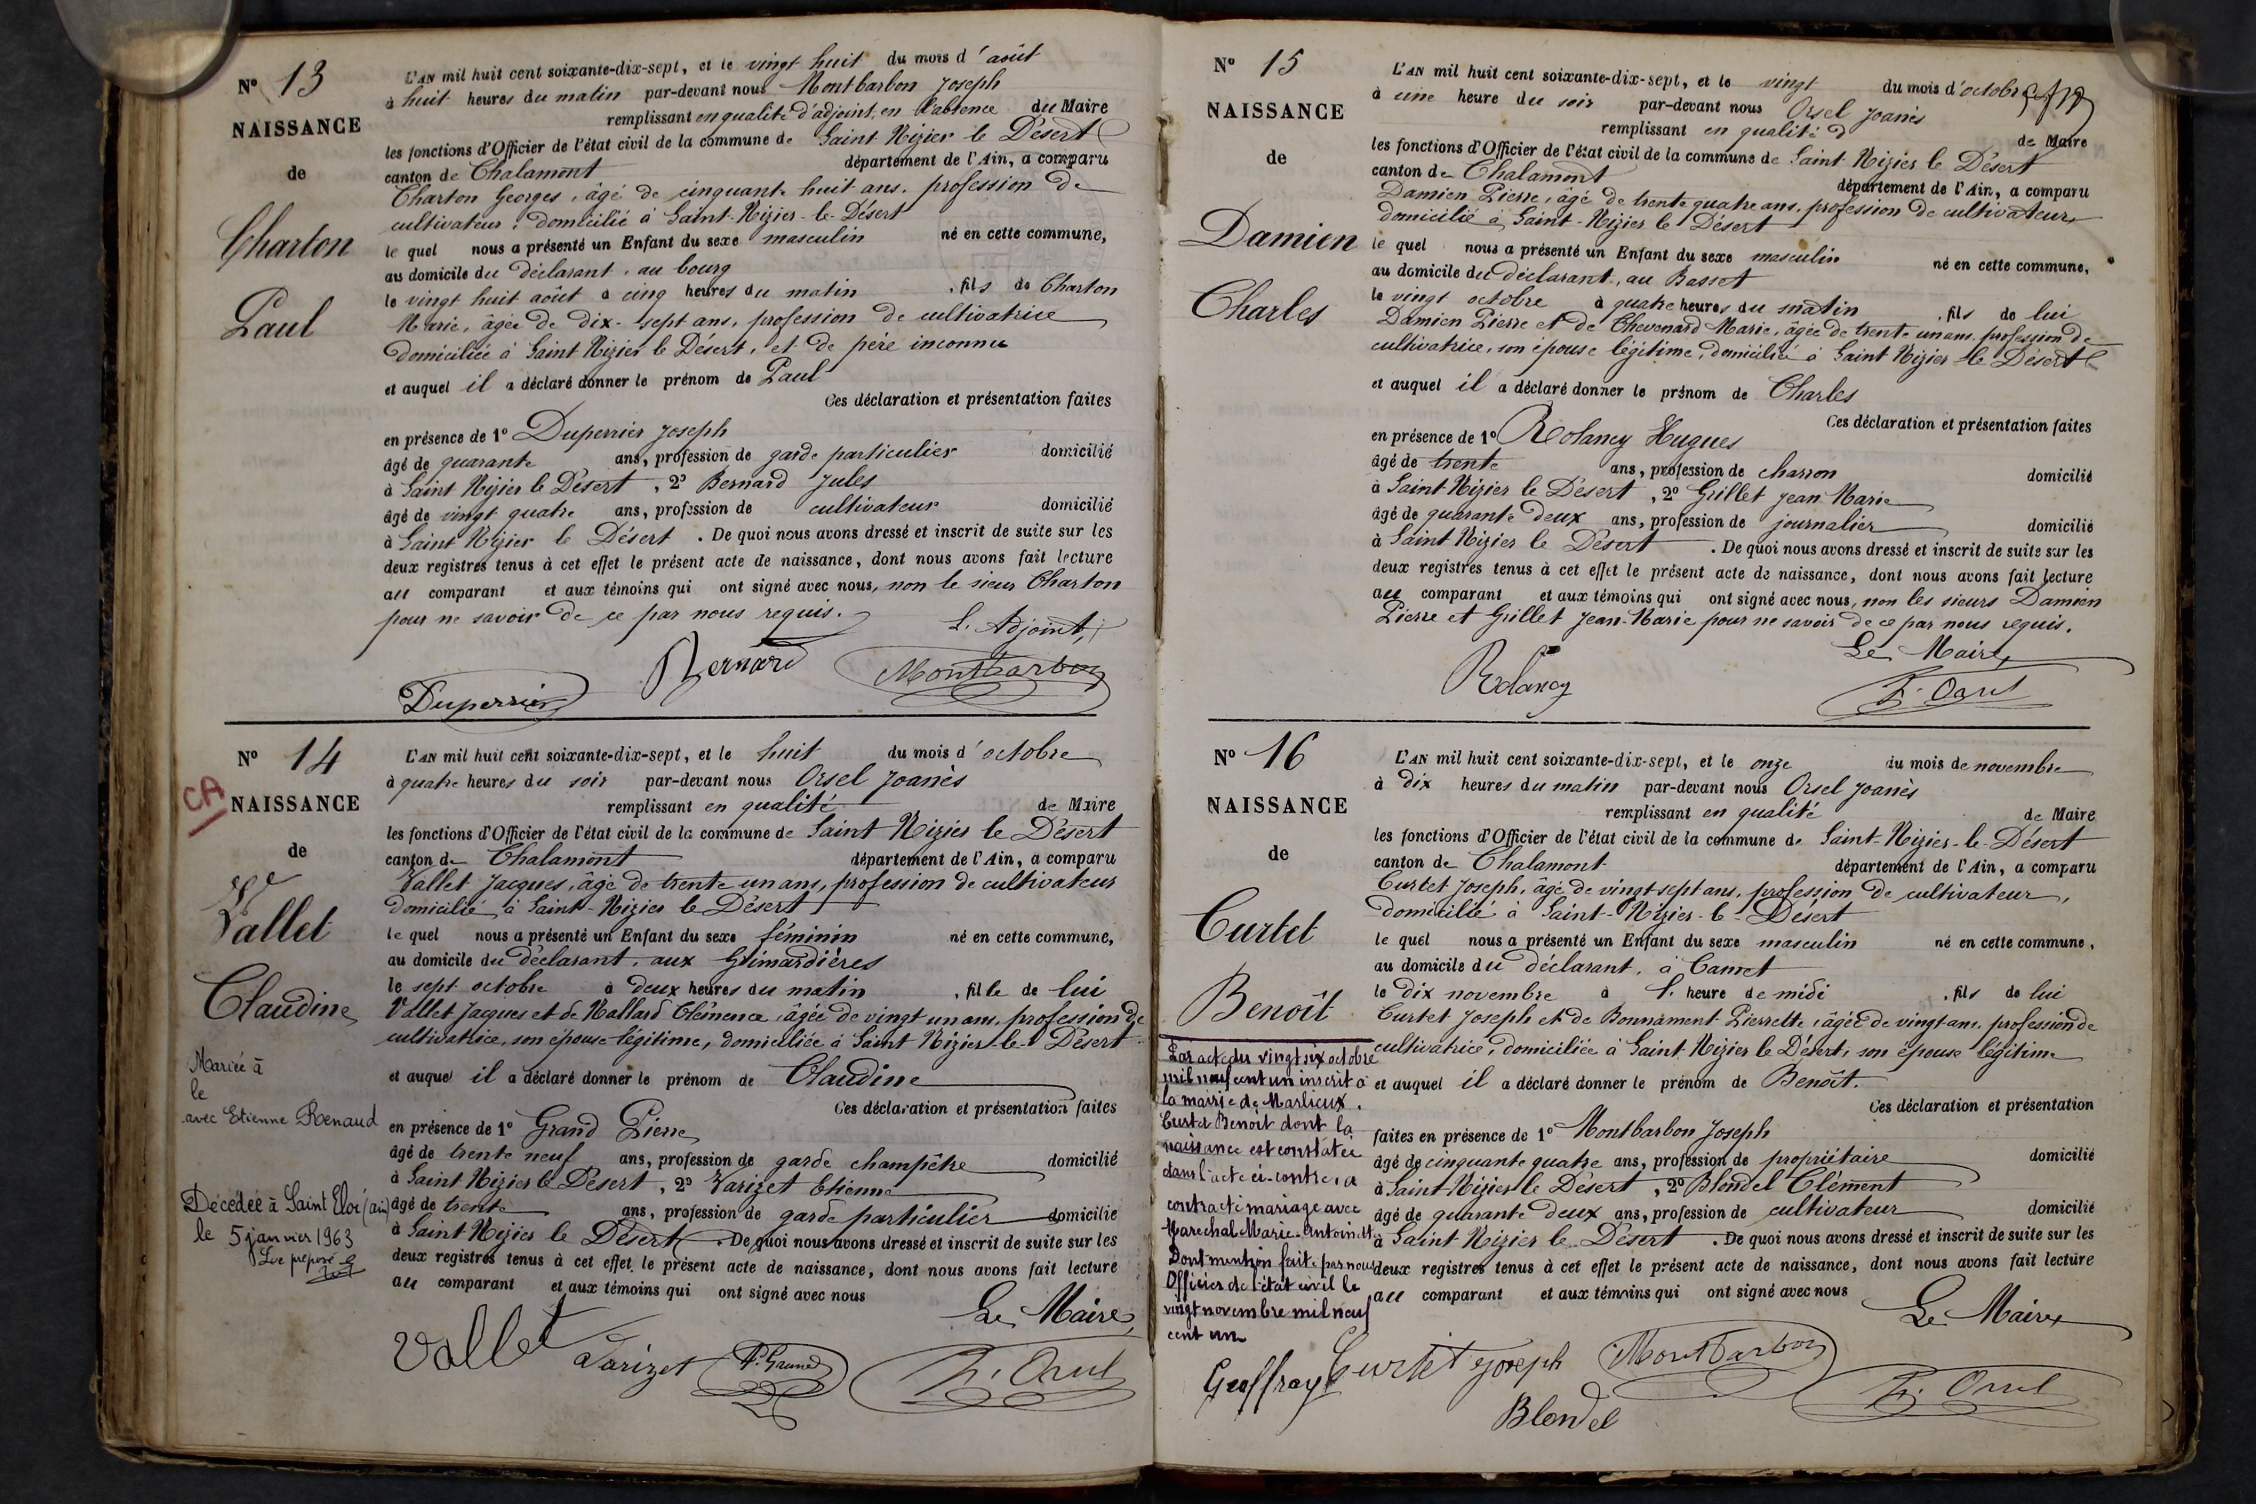 Nº 13
NAISSANCE
de
Charton
Paul
L'AN mil huit cent soixante-dix-sept, et le vingt huit du mois d'août
à huit heures du matin par-devant nous Montbarbon Joseph
remplissant en qualité d'adjoint, en l'absence du Maire
les fonctions d'Officier de l'état civil de la commune de Saint Nizier le Désert
canton de Chalamont département de l'Ain, a comparu
Charton Georges, âgé de cinquante huit ans, profession de
cultivateur, domicilié à Saint-Nizier-le-Désert
le quel nous a présenté un Enfant du sexe masculin né en cette commune,
au domicile du déclarant, au bourg
le vingt huit août à cinq heures du matin, fils de Charton
Marie, âgée de dix-sept ans, profession de cultivatrice
domiciliée à Saint Nizier le Désert, et de père inconnu
et auquel il a déclaré donner le prénom de Paul
Ces déclaration et présentation faites
en présence de 1º Duperrier Joseph
âgé de quarante ans, profession de garde particulier domicilié
à Saint Nizier le Désert, 2º Bernard Jules
âgé de vingt quatre ans, profession de cultivateur domicilié
à Saint Nizier le Désert. De quoi nous avons dressé et inscrit de suite sur les
deux registres tenus à cet effet le présent acte de naissance, dont nous avons fait lecture
au comparant et aux témoins qui ont signé avec nous, non le sieur Charton
pour ne savoir de ce par nous requis.
L'Adjoint,
Duperrier Bernard Montbarbon
Nº 14
CA
NAISSANCE
de
Vallet
Claudine
Mariée à
le
avec Etienne Renaud
Décédée à Saint Eloi (ain)
le 5 janvier 1963
Le préposé
L'AN mil huit cent soixante-dix-sept, et le huit du mois d'octobre
à quatre heures du soir par-devant nous Orsel Joanès
remplissant en qualité de Maire
les fonctions d'Officier de l'état civil de la commune de Saint Nizier le Désert
canton de Chalamont département de l'Ain, a comparu
Vallet Jacques, âgé de trente un ans, profession de cultivateur
domicilié à Saint-Nizier le Désert
le quel nous a présenté un Enfant du sexe féminin né en cette commune,
au domicile du déclarant, aux Grimardières
le sept octobre à deux heures du matin, fille de lui
Vallet Jacques et de Mallard Clémence, âgée de vingt un ans, profession de
cultivatrice, son épouse légitime, domiciliée à Saint Nizier-le-Désert
et auquel il a déclaré donner le prénom de Claudine
Ces déclaration et présentation faites
en présence de 1º Grand Pierre
âgé de trente neuf ans, profession de garde champêtre domicilié
à Saint Nizier le Désert, 2º Varizet Etienne
âgé de trente ans, profession de garde particulier domicilié
à Saint Nizier le Désert. De quoi nous avons dressé et inscrit de suite sur les
deux registres tenus à cet effet le présent acte de naissance, dont nous avons fait lecture
au comparant et aux témoins qui ont signé avec nous
Le Maire,
Vallet Varizet P. Grand J. Orsel
Nº 15
NAISSANCE
de
Damien
Charles
L'AN mil huit cent soixante-dix-sept, et le vingt du mois d'octobre
à une heure du soir par-devant nous Orsel Joanès
remplissant en qualité de Maire
les fonctions d'Officier de l'état civil de la commune de Saint-Nizier le Désert
canton de Chalamont département de l'Ain, a comparu
Damien Pierre, âgé de trente quatre ans, profession de cultivateur
domicilié à Saint-Nizier le Désert
le quel nous a présenté un Enfant du sexe masculin né en cette commune,
au domicile du déclarant, au Basset
le vingt octobre à quatre heures du matin, fils de lui
Damien Pierre et de Chevenard Marie, âgée de trente un ans, profession de
cultivatrice, son épouse légitime, domiciliée à Saint Nizier le Désert
et auquel il a déclaré donner le prénom de Charles
Ces déclaration et présentation faites
en présence de 1º Rolancy Hugues
âgé de trente ans, profession de charron domicilié
à Saint Nizier le Désert, 2º Grillet Jean Marie
âgé de quarante deux ans, profession de journalier domicilié
à Saint Nizier le Désert. De quoi nous avons dressé et inscrit de suite sur les
deux registres tenus à cet effet le présent acte de naissance, dont nous avons fait lecture
au comparant et aux témoins qui ont signé avec nous, non les sieurs Damien
Pierre et Grillet Jean-Marie pour ne savoir de ce par nous requis.
Le Maire
Rolancy J. Orsel
Nº 16
NAISSANCE
de
Curtet
Benoît
Par acte du vingt six octobre
mil neuf cent un inscrit à
la mairie de Marlieux.
Curtet Benoît dont la
naissance est constatée
dans l'acte ci-contre, a
contracté mariage avec
Maréchal Marie-Antoinette
Dont mention faite par nous
Officier de l'état civil le
vingt novembre mil neuf
cent un
Geoffray
L'AN mil huit cent soixante-dix-sept, et le onze du mois de novembre
à dix heures du matin par-devant nous Orsel Joanès
remplissant en qualité de Maire
les fonctions d'Officier de l'état civil de la commune de Saint-Nizier-le-Désert
canton de Chalamont département de l'Ain, a comparu
Curtet Joseph, âgé de vingt sept ans, profession de cultivateur,
domicilié à Saint-Nizier-le-Désert
le quel nous a présenté un Enfant du sexe masculin né en cette commune,
au domicile du déclarant, à Camet
le dix novembre à l'heure de midi, fils de lui
Curtet Joseph et de Bonnament Pierrette, âgée de vingt ans, profession de
cultivatrice, domiciliée à Saint Nizier le Désert, son épouse légitime
et auquel il a déclaré donner le prénom de Benoît.
Ces déclaration et présentation
faites en présence de 1º Montbarbon Joseph
âgé de cinquante quatre ans, profession de propriétaire domicilié
à Saint-Nizier le Désert, 2º Blondel Clément
âgé de quarante deux ans, profession de cultivateur domicilié
à Saint Nizier le Désert. De quoi nous avons dressé et inscrit de suite sur les
deux registres tenus à cet effet le présent acte de naissance, dont nous avons fait lecture
au comparant et aux témoins qui ont signé avec nous
Le Maire
Curtet Joseph Montbarbon J. Orsel
Blondel